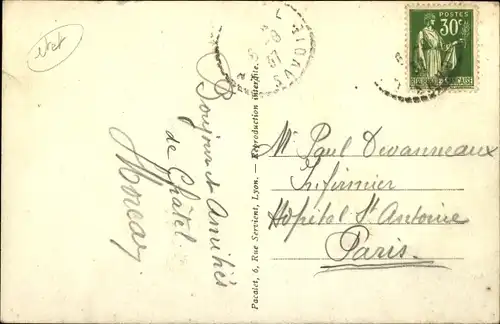 Bonjour et Amitiés
de Châtel
Pacalet, 6, Rue Servient, Lyon. — Reproduction interdite.
SAVOIE
POSTES
30c
Mr Paul Devanneaux
Infirmier
Hôpital St Antoine
Paris